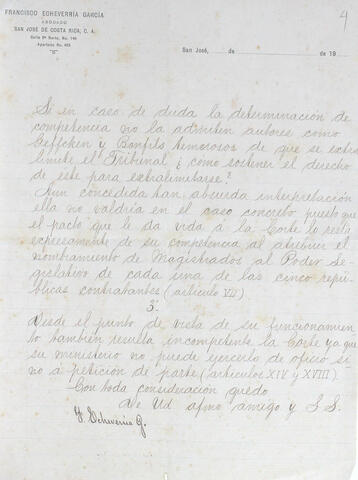 4
FRANCISCO ECHEVERRÍA GARCÍA
ABOGADO
SAN JOSÉ DE COSTA RICA, C. A.
Calle 9ª Norte, No. 146
Apartado No. 463
San José, de de 19
Si en caso de duda la determinación de
competencia no la admiten autores como
Geffcken y Bonfils temerosos de que se extra
limite el Tribunal ¿como sostener el derecho
de este para extralimitarse?
Aun concedida tan absurda interpretación
ella no valdría en el caso concreto puesto que
el pacto que le da vida á la Corte le resta
expresamente de su competencia al atribuir el
nombramiento de Magistrados al Poder Le-
gislativo de cada una de las cinco repú
blicas contratantes (artículo VII).
3º
Desde el punto de vista de su funcionamien
to tambien resulta incompetente la Corte ya que
su ministerio no puede ejercerlo de oficio si
no á petición de parte (artículos XIV y XVIII).
Con toda consideración quedo
de Ud afmo amigo y S. S.
F. Echeverría G.